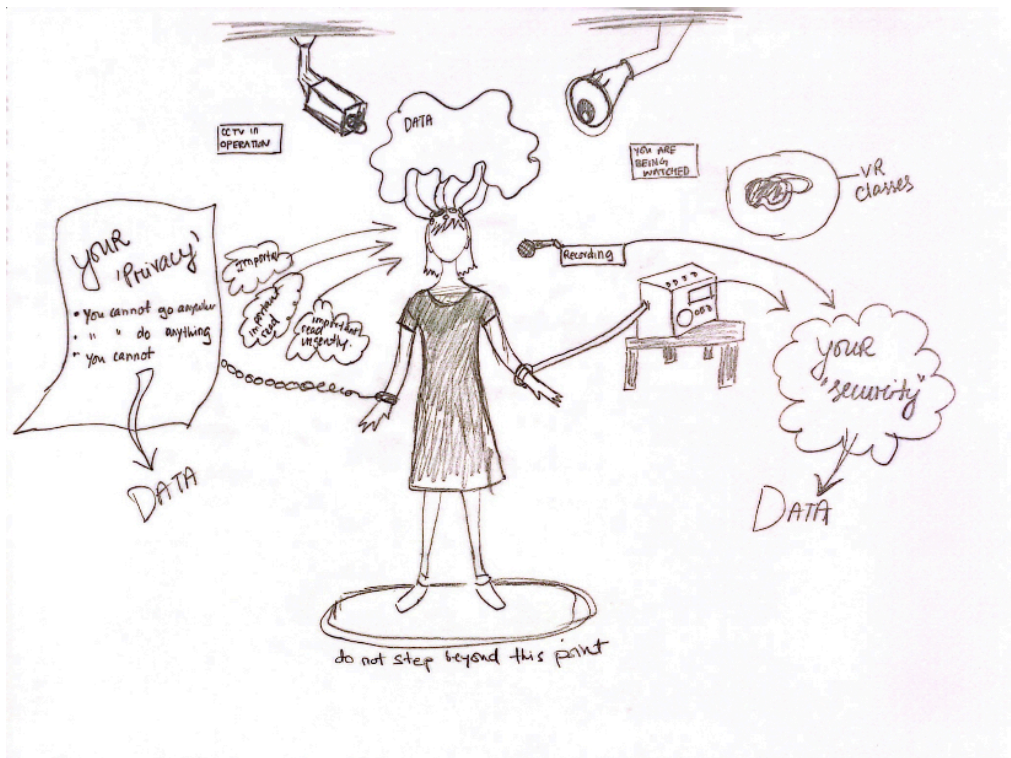 CCTV in
OPERATION
DATA
YOU ARE
BEING
WATCHED
VR
classes
YOUR
'Privacy'
• You cannot go anywhere
• " " do anything
" You cannot
DATA
Importa
important
read
important
read
urgently.
Recording
YOUR
"security"
DATA
do not step beyond this point